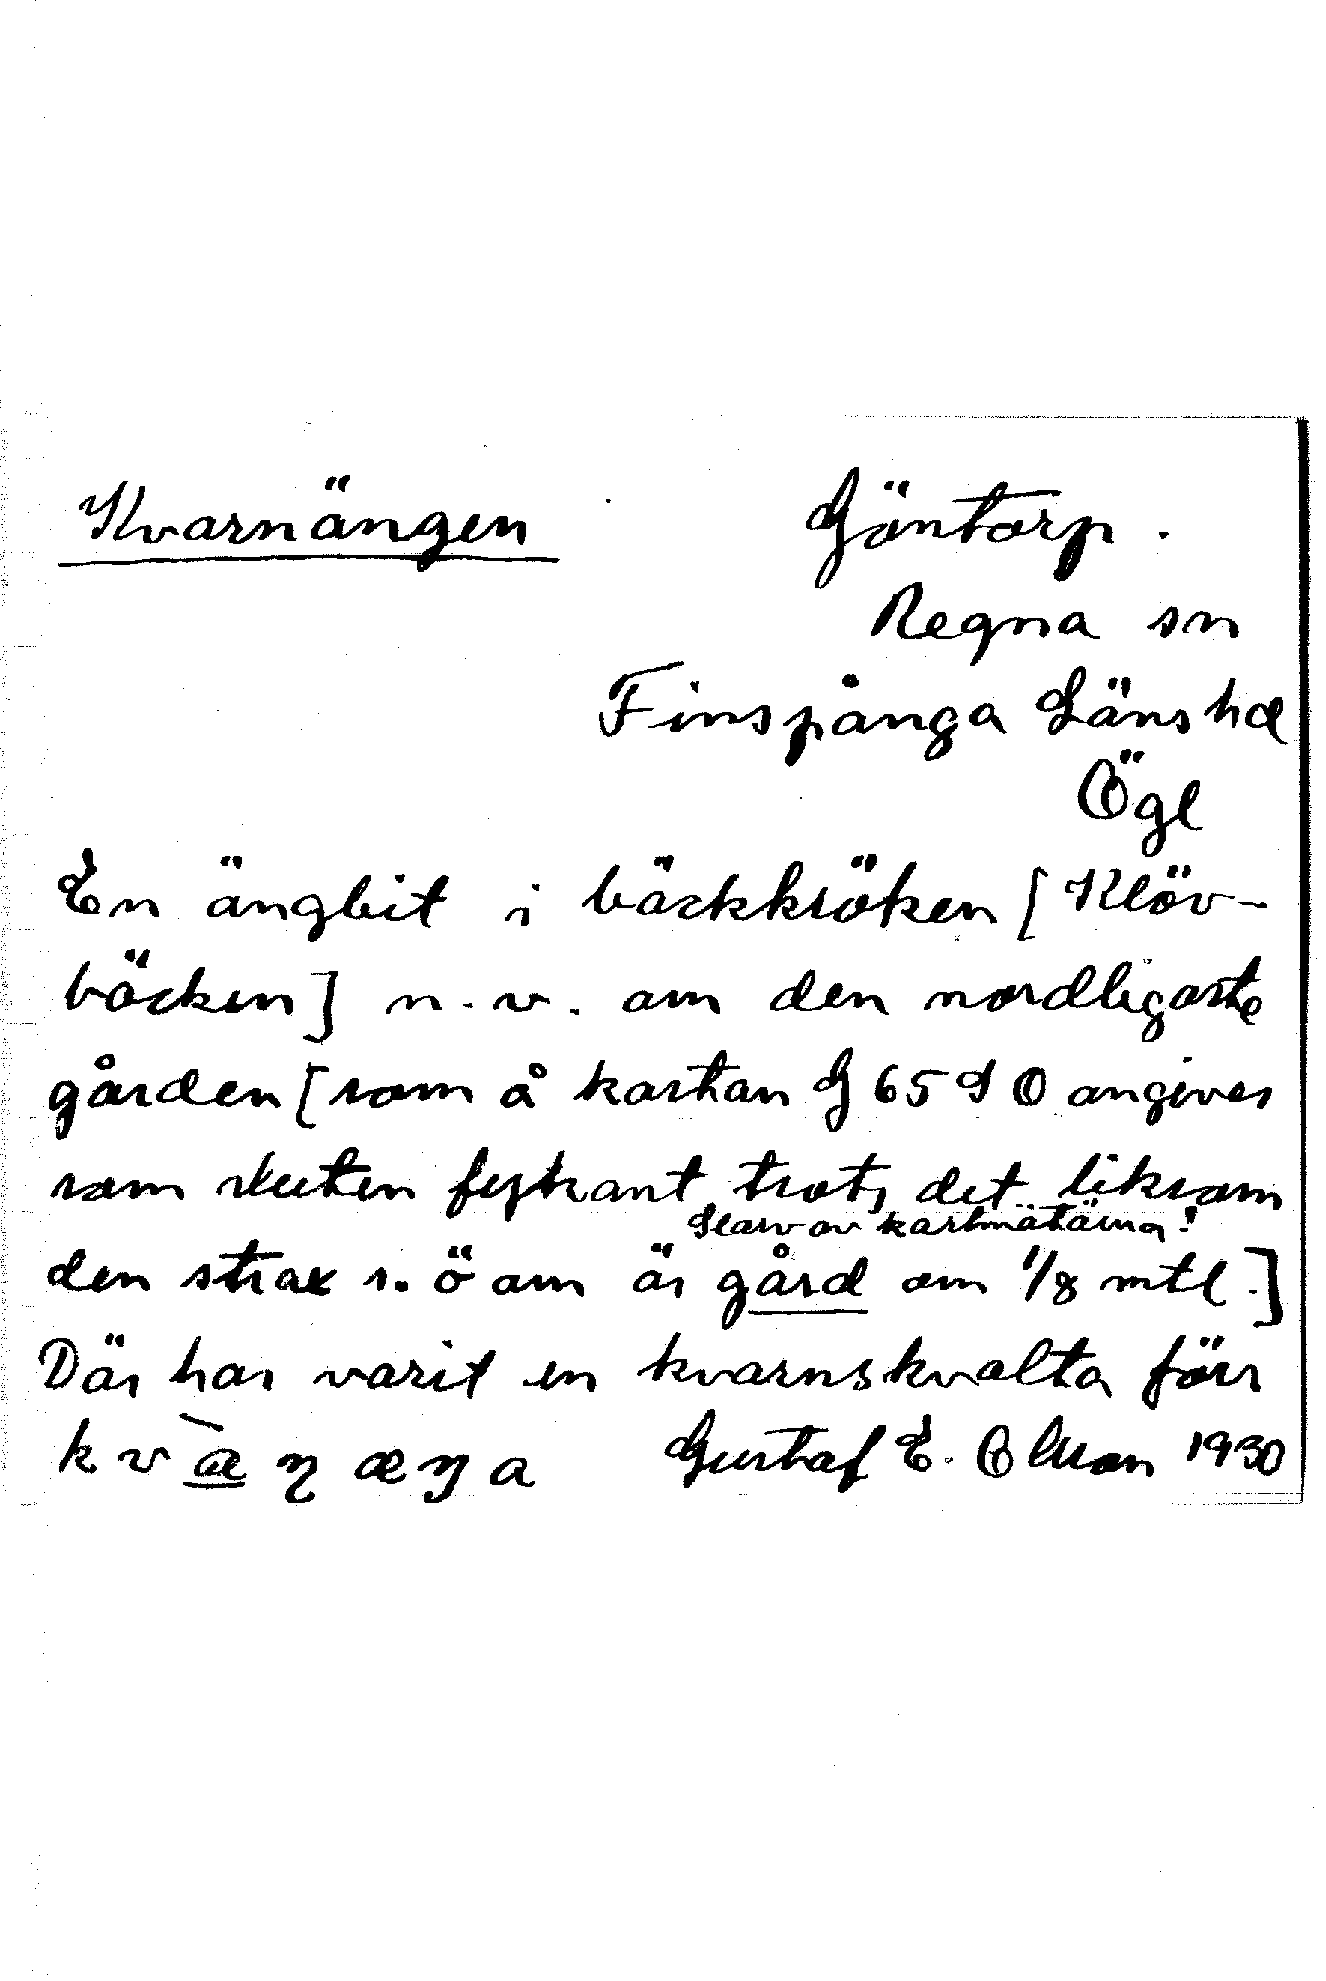 Kvarnängen
Göntorp.
Regna sn
Finspånga Länshd
Ögl
En ängbit i bäckkröken [Klöv-
bäcken] n.v. om den nordligaste
gården [som å kartan G 65 S O angives
som sluten fyrkant trots det liksom
Slarv av kartmätarna!
den strax s.ö om är gård om 1/8 mtl.]
Där har varit en kvarnskvalta förr
Gustaf E. Olsson 1930